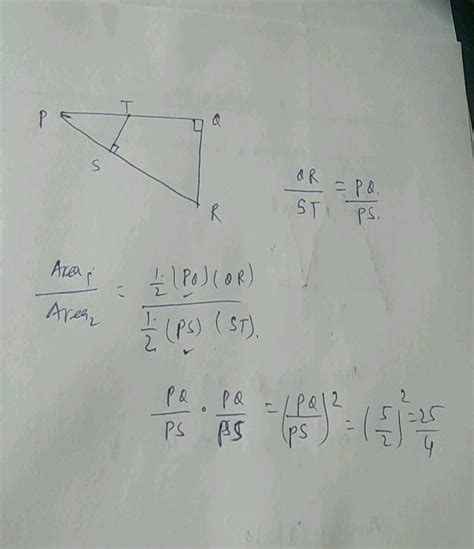 P T Q
S
R
QR/ST = PQ/PS.
Area₁/Area₂ = ½(PQ)(QR)/½(PS)(ST).
PQ/PS · PQ/PS = (PQ/PS)² = (5/2)² = 25/4